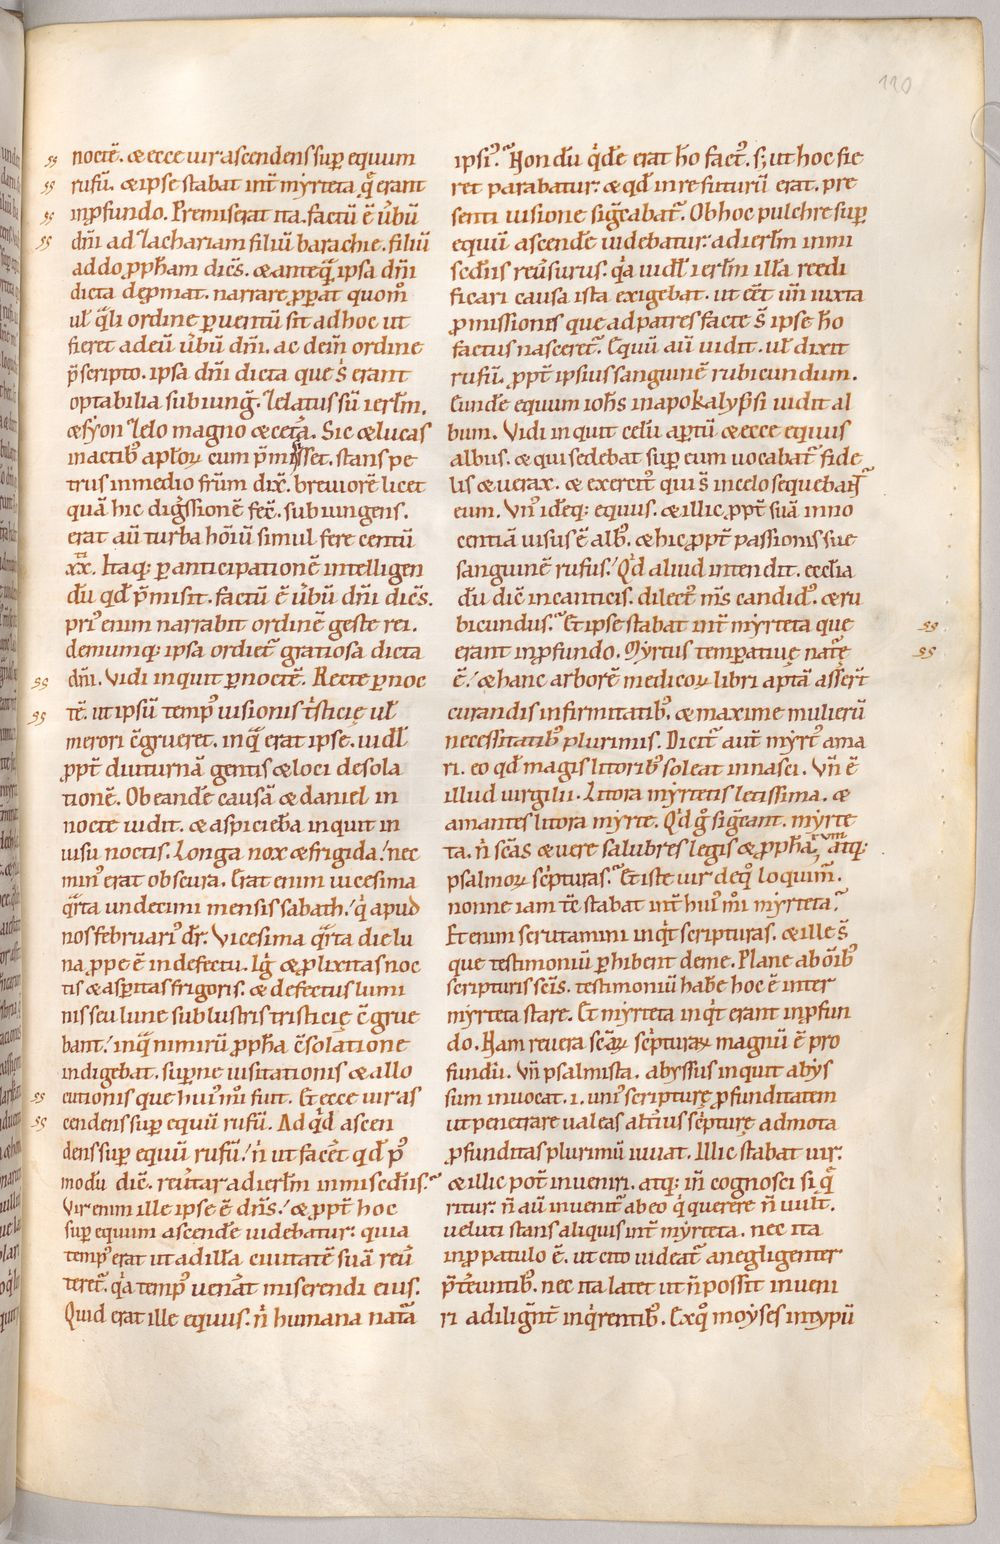 110
noctē. & ecce uir ascendens sup̄ equum
rufū. & ipse stabat int̄ myrteta q̄ erant
inp̄fundo. Premiserat ita. factū ē ūbū
dn̄i ad Zachariam filiū barachie. filiū
addo p̱ph̄am dicēs. & anteq̄ ipsa dn̄i
dicta dep̱mat. narrare p̱perat quom̊
ul̄ q̄li ordine p̱uentū sit ad hoc ut
fieret ad eū ūbū dn̄i. ac dein̄ ordine
p̄scripto. ipsa dn̄i dicta que s̄ erant
optabilia subiung̃. Zelatus sū ierl̄m.
& syon zelo magno & cet̃a. Sic & lucas
in actib; aplo℞ cum p̄misisset. stans pe
trus in medio fr̄um dix̄. breuiorē licet
quā hic dig̃ssionē fec̄. subiungens.
erat aū turba hōiū simul fere centū
xx. Itaq; p̱ anticipationē intelligen
dū qd̄ p̄misit. factū ē ūbū dn̄i dicēs.
pri᾽ enim narrabit ordinē geste rei.
demumq; ipsa ordiet᷑ gratiosa dicta
dn̄i. Vidi inquit p̱ noctē. Recte p̱ noc
tē. ut ipsū temp᾽ uisionis t̄sticię ul̄
merori c̄grueret. in q̄ erat ipse. iudl̄
p̱pt̄ diuturnā gentis & loci desola
tionē. Ob eandē causā & daniel in
nocte uidit. & aspiciebā inquit in
uisu noctis. Longa nox & frigida. nec
min᾽ erat obscura. Erat enim uicesima
q̄rta undecimi mensis sabath. q̄ apud
nos februari᾽ dr̄. Vicesima q̄rta die lu
na p̱pe ē in defectu. Ig̃ & p̱lixitas noc
tis & asp̱itas frigoris. & defectus lumi
nis seu lune sublustris tristicię c̄grue
bant. in q̄ nimirū p̱ph̄a c̄solatione
indigebat. sup̱ne uisitationis & allo
cutionis que hui᾽ m̊i fuit. Et ecce uir as
cendens sup̄ equū rufū. Ad q̇d ascen
dens sup̄ equū rufū. n̄ ut facēt qd̄ p᾽
modū dic̄. reūtar ad ierl̄m in misedīis.
Vir enim ille ipse ē dn̄s. & p̱pt̄ hoc
sup̄ equum ascendē uidebatur: quia
temp᾽ erat ut ad illā ciuitatē suā reū
teret᷑. q̇a temp᾽ uenāt miserendi eius.
Quid erat ille equus. n̄ humana nat̃a
ipsi᾽. Non dū q̇dē erat hō fact᾽. s; ut hoc fie
ret parabatur. & qd̄ in re futurū erat. pre
senti uisione sig̃cabat᷑. Ob hoc pulchre sup̄
equū ascendē uidebatur. ad ierl̄m in mi
sedīis reūsurus. q̇a uidl̄ ierl̄m illā reedi
ficari causa ista exigebat. ut eēt un̄ iuxta
p̱missionis que ad patres facte s̄ ipse hō
factus nasceret᷑. Equū aū uidit. ul̄ dixit
rufū. p̱pt̄ ipsius sanguinē rubicundum.
Eundē equum ioh̄s in apokalypsi uidit al
bum. Vidi inquit celū ap̱tū & ecce equus
albus. & qui sedebat sup̄ eum uocabat᷑ fide
lis & uerax. & exercit᾽ qui s̄ in celo sequebant᷑
eum. Vn᾽ idēq; equus. & illic p̱pt̄ suā inno
centiā uisus ē alb᾽. & hic p̱pt̄ passionis sue
sanguinē rufus. Q̇d aliud intendit. eccl̄ia
dū dic̄ in canticis. dilect᾽ m̄s candid᾽. & ru
bicundus. Et ipse stabat int̄ myrteta que
erant inp̄fundo. Myrtus temp̱atiuę nat̃ę
ē. & hanc arborē medico℞ libri aptā asser̄t
curandis infirmitatib᾽. & maxime mulierū
necessitatib᾽ plurimis. Dicit᷑ aut̄ myrt᾽ ama
ri. eo qd̄ magis litorib᾽ soleat innasci. Vn̄ ē
illud uirgilii. Litora myrtetis letissima. &
amantes litora myrte. Q̇d g̃ sig̃cant. myrte
ta. n̄ scās & uere salubres legis & p̱ph̄arum atq;
psalmo℞ sc̓pturas. Et iste uir deq᾽ loquim᷑.
nonne iam tē stabat int̄ hui᾽ m̊i myrteta.
Etenim scrutamini inq̇t scripturas. & ille s̄
que testimoniū p̱hibent de me. Plane ab ōib᾽
scripturis scīs. testimoniū habē hoc ē inter
myrteta stare. Et myrteta inq̇t erant inp̄fun
do. Nam reuera scā℞ sc̓ptura℞ magnū ē pro
fundū. Vn̄ psalmista. abyssus inquit abys
sum inuocat. i. uni᾽ scripturę p̱funditatem
ut penetrare ualeas alt̄ius sc̓pturę admota
p̱funditas plurimū iuuat. Illic stabat uir.
& illic pot̄ inueniri. atq; in̄ cognosci si q̄
ritur. n̄ aū inuenit᷑ ab eo q̇ querere n̄ uult.
ueluti stans aliquis int̄ myrteta. nec ita
inp̱patulo ē. ut cito uideat᷑ a negligenter
p̄t̄euntib᾽. nec ita latet ut n̄ possit inueni
ri a diligñt̄ inq̇rentib᾽. Ex q᾽ moyses in typū